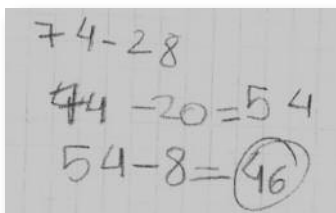 74-28
74 -20=54
54-8=46